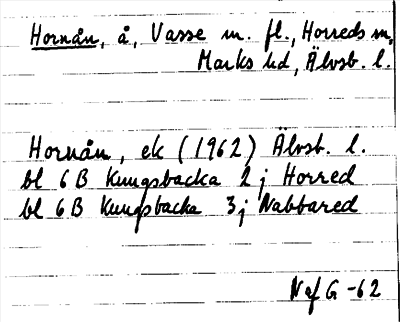 Hornån, å, Vasse m. fl., Horreds sn,
Marks hd, Älvsb. l.
Hornån, ek (1962) Älvsb. l.
bl 6 B Kungsbacka 2 j Horred
bl 6 B Kungsbacka 3 j Nabbared
NafG -62